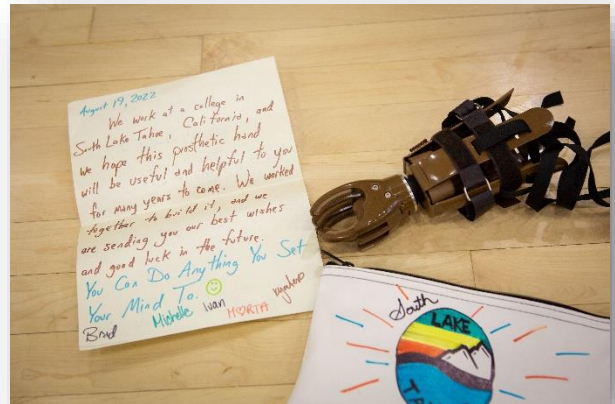 August 19, 2022
We work at a college in
South Lake Tahoe, California, and
we hope this prosthetic hand
will be useful and helpful to you
for many years to come. We worked
together to build it, and we
are sending you our best wishes
and good luck in the future.
You Can Do Anything You Set
Your Mind To.
Brad Michelle Ivan MARTA
South
LAKE